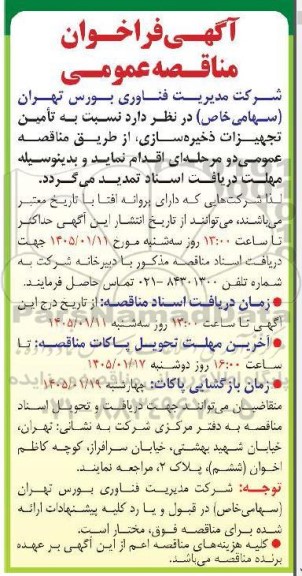 آگهی فراخوان
مناقصه عمومی
شرکت مدیریت فناوری بورس تهران
(سهامی خاص) در نظر دارد نسبت به تأمین
تجهیزات ذخیره‌سازی، از طریق مناقصه
عمومی دو مرحله‌ای اقدام نماید و بدینوسیله
مهلت دریافت اسناد تمدید می‌گردد.
لذا شرکت‌هایی که دارای پروانه افتا با تاریخ معتبر
می‌باشند، می‌توانند از تاریخ انتشار این آگهی حداکثر
تا ساعت ۱۳:۰۰ روز سه‌شنبه مورخ ۱۴۰۵/۰۱/۱۱ جهت
دریافت اسناد مناقصه مذکور با دبیرخانه شرکت به
شماره تلفن ۸۴۳۰۱۳۰۰-۰۲۱ تماس حاصل فرمایند.
● زمان دریافت اسناد مناقصه: از تاریخ درج این
آگهی تا ساعت ۱۳:۰۰ روز سه‌شنبه ۱۴۰۵/۰۱/۱۱
● آخرین مهلت تحویل پاکات مناقصه: تا
ساعت ۱۶:۰۰ روز دوشنبه ۱۴۰۵/۰۱/۱۷
● زمان بازگشایی پاکات: چهارشنبه ۱۴۰۵/۰۱/۱۹
متقاضیان می‌توانند جهت دریافت و تحویل اسناد
مناقصه به دفتر مرکزی شرکت به نشانی: تهران،
خیابان شهید بهشتی، خیابان سرافراز، کوچه کاظم
اخوان (ششم)، پلاک ۲، مراجعه نمایند.
توجه: شرکت مدیریت فناوری بورس تهران
(سهامی خاص) در قبول و یا رد کلیه پیشنهادات ارائه
شده برای مناقصه فوق، مختار است.
● کلیه هزینه‌های مناقصه اعم از این آگهی بر عهده
برنده مناقصه می‌باشد.